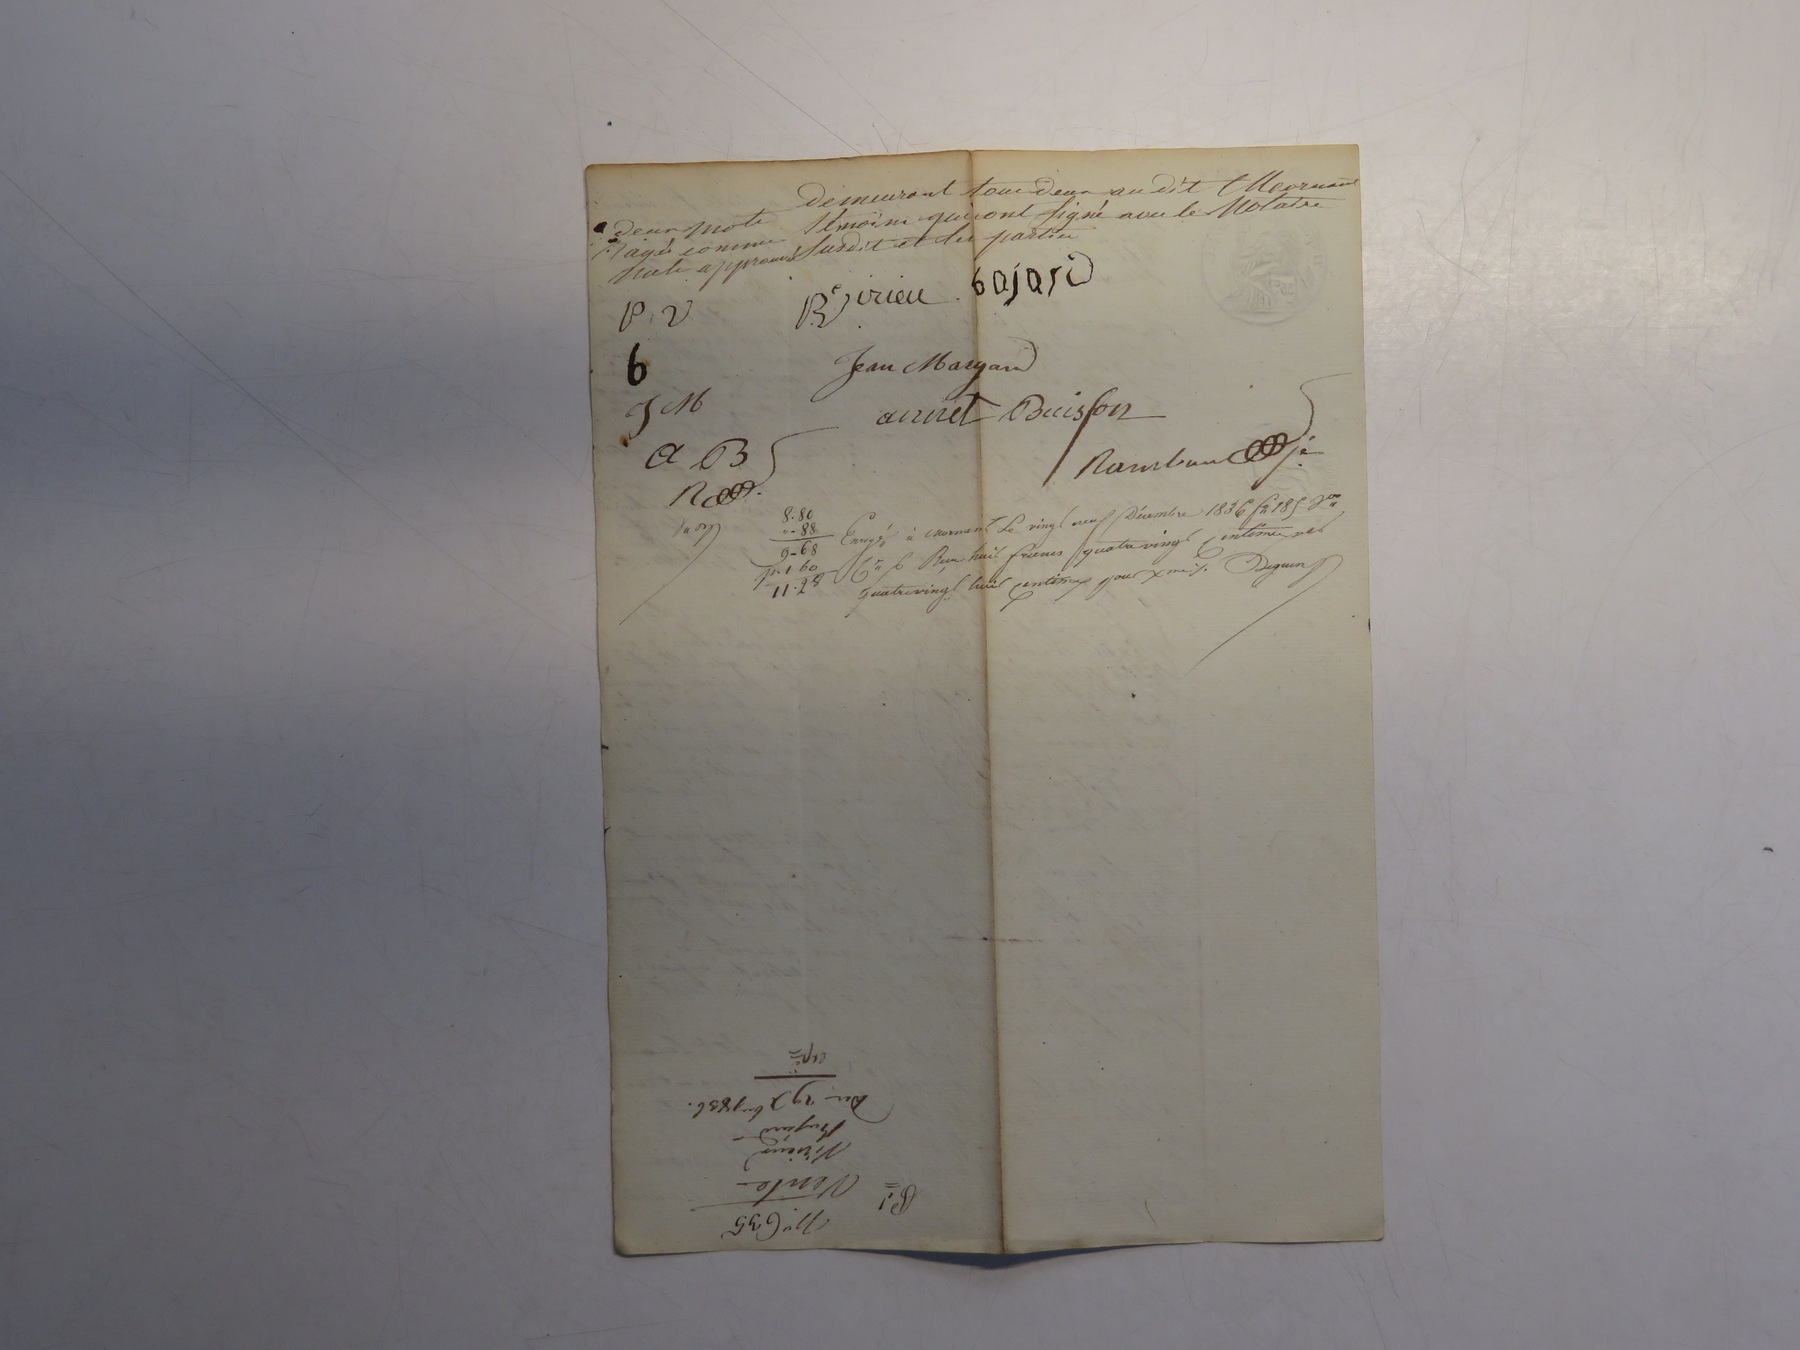 Demeurant tous deux au dit Mornant
témoins qui ont signé avec le Notaire
susdit et les parties
deux mots
rayés comme
nuls approuvés
P. V
Pre virieu bajard
b
Jean Margand
J M
annet Buisson
A B
Rambaud je
R
8.80
"-88
9-68
p. 1 60
11.28
Enregé à mornant Le vingt neuf Décembre 1836 fo 185 Vo
Reçu huit francs quatrevingt centimes
quatrevingt huit centimes pour Xme. Deguin
No 635
Pd
Vente
Virieux
Bajard
Du 29 Xbre 1836.
expée